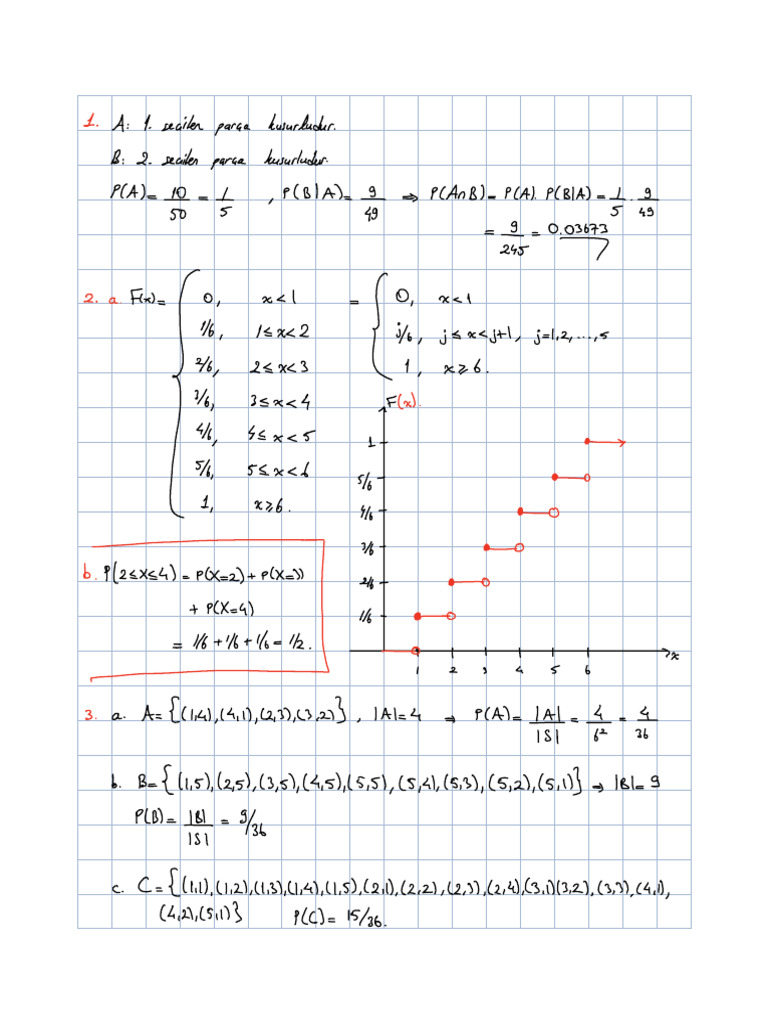 1. A: 1. seçilen parça kusurludur.
B: 2. seçilen parça kusurludur.
P(A) = 10/50 = 1/5 , P(B|A) = 9/49 ⇒ P(A∩B) = P(A). P(B|A) = 1/5 . 9/49
= 9/245 = 0.03673
2. a. F(x) = { 0, x<1 = { 0, x<1
1/6, 1≤x<2 j/6, j≤x<j+1, j=1,2,...,5
2/6, 2≤x<3 1, x≥6.
3/6, 3≤x<4
4/6, 4≤x<5
5/6, 5≤x<6
1, x≥6.
F(x).
1
5/6
4/6
3/6
2/6
1/6
1 2 3 4 5 6 x
b. P(2≤X≤4) = P(X=2) + P(X=3)
+ P(X=4)
= 1/6 + 1/6 + 1/6 = 1/2.
3. a. A = {(1,4), (4,1), (2,3), (3,2)} , |A| = 4 ⇒ P(A) = |A|/|S| = 4/6² = 4/36
b. B = {(1,5), (2,5), (3,5), (4,5), (5,5), (5,4), (5,3), (5,2), (5,1)} ⇒ |B| = 9
P(B) = |B|/|S| = 9/36
c. C = {(1,1), (1,2), (1,3), (1,4), (1,5), (2,1), (2,2), (2,3), (2,4), (3,1) (3,2), (3,3), (4,1),
(4,2), (5,1)} P(C) = 15/36.